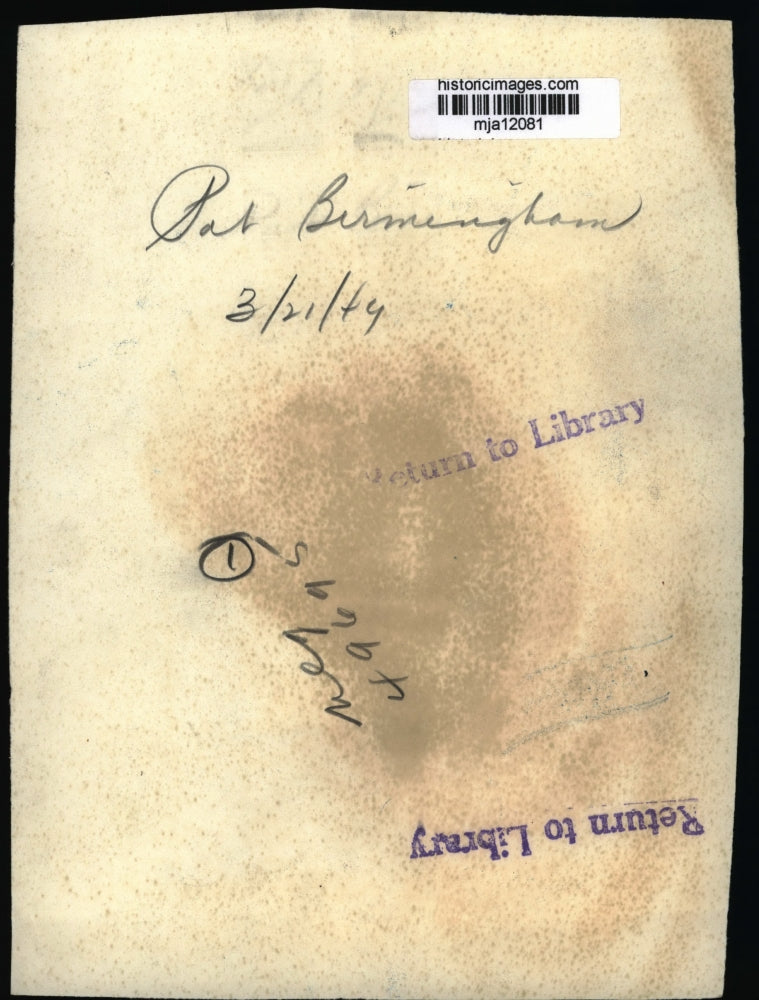 historicimages.com
mja12081
Pat Bermingham
3/21/49
Return to Library
1
Return to Library